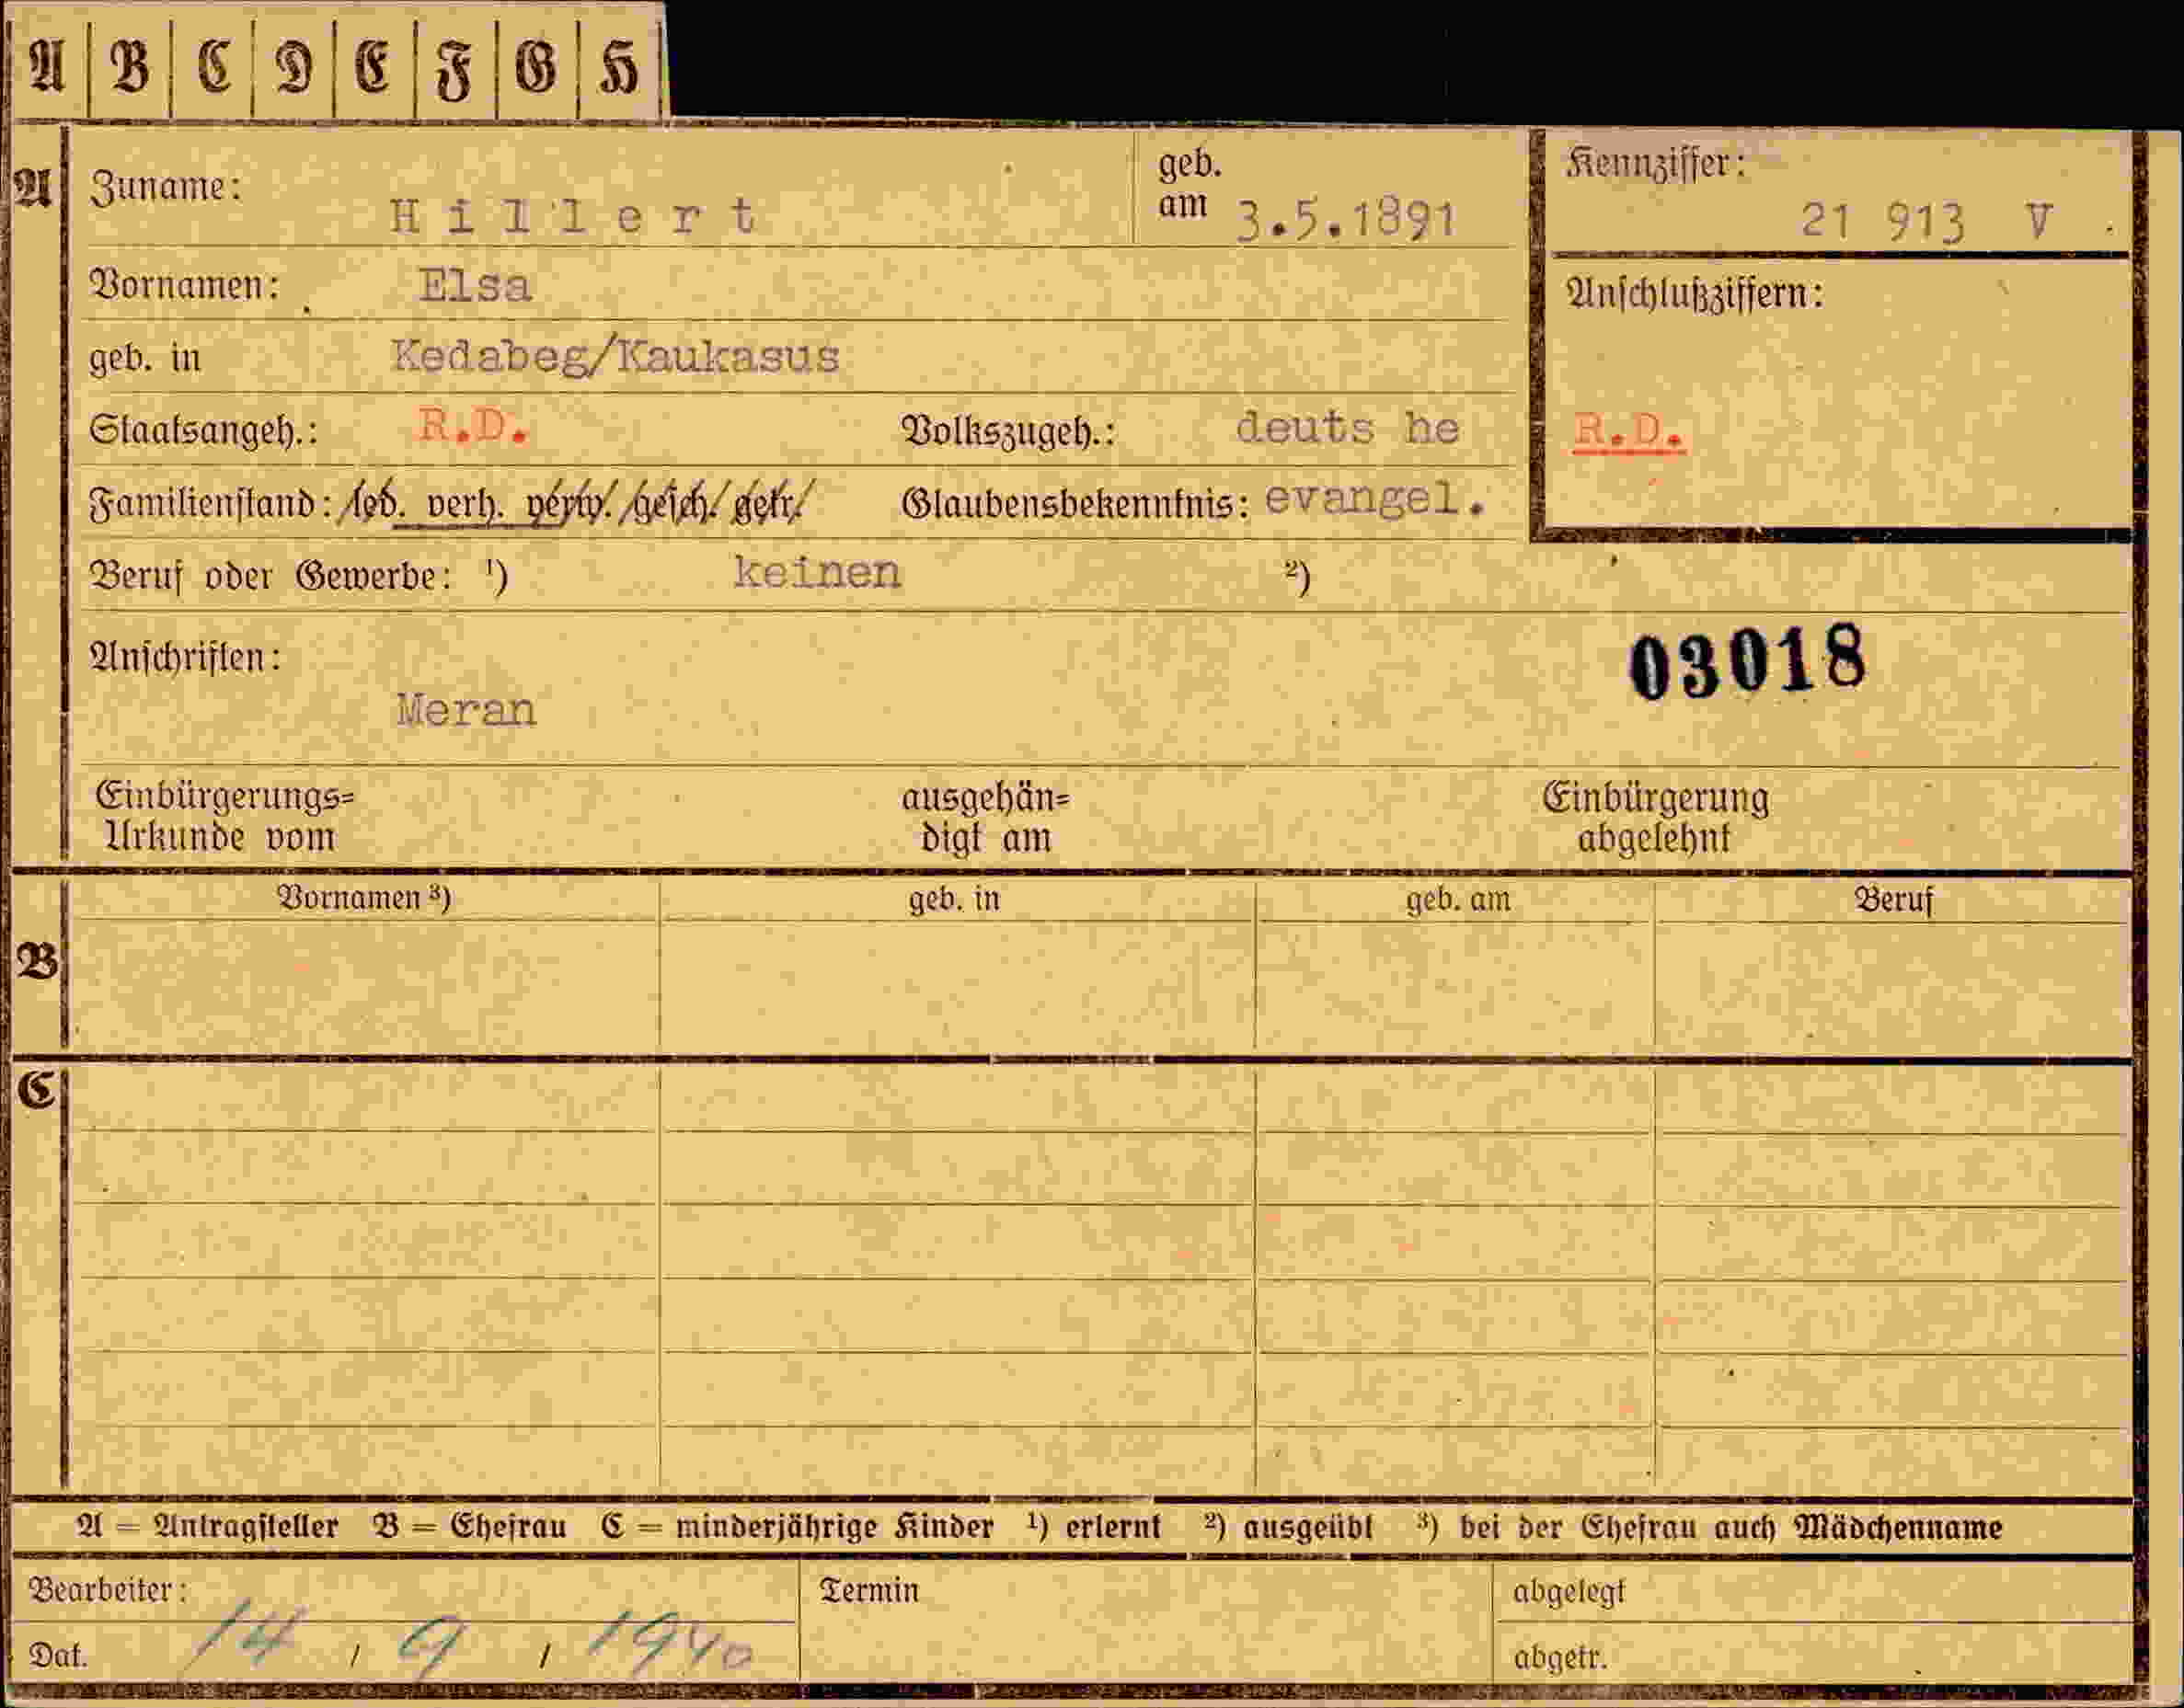 A B C D E F G H
A Zuname: Hillert geb. am 3.5.1891 Kennziffer: 21 913 V
Vornamen: Elsa Anschlußziffern:
geb. in Kedabeg/Kaukasus
Staatsangeh.: R.D. Volkszugeh.: deuts he R.D.
Familienstand: led. verh. verw. gesch. getr. Glaubensbekenntnis: evangel.
Beruf oder Gewerbe: ¹) keinen ²)
Anschriften: 03018
Meran
Einbürgerungs= ausgehän= Einbürgerung
Urkunde vom digt am abgelehnt
Vornamen ³) geb. in geb. am Beruf
B
C
A = Antragsteller B = Ehefrau C = minderjährige Kinder ¹) erlernt ²) ausgeübt ³) bei der Ehefrau auch Mädchenname
Bearbeiter: Termin abgelegt
Dat. 14 / 9 / 1940 abgetr.